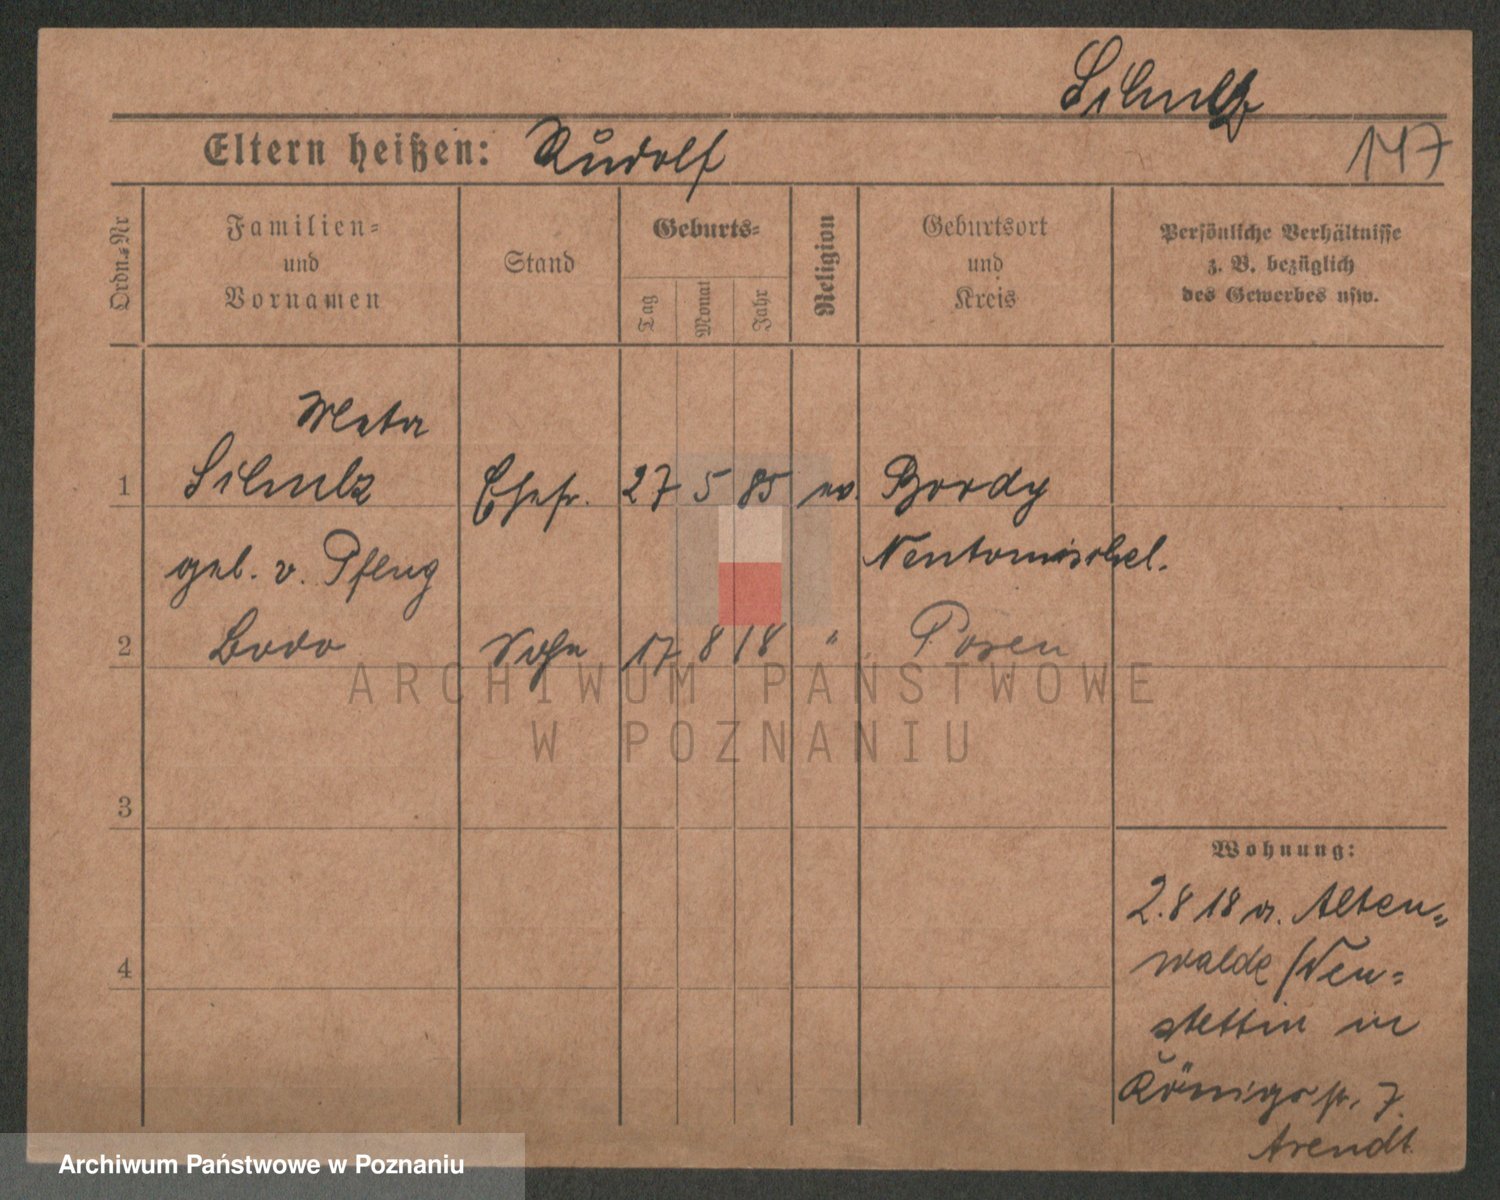 Schulz
147
Eltern heißen: Rudolf
Ordn.-Nr
Familien-
und
Vornamen
Stand
Geburts-
Tag
Monat
Jahr
Religion
Geburtsort
und
Kreis
Persönliche Verhältnisse
z. B. bezüglich
des Gewerbes usw.
Meta
1 Schulz Ehefr. 27 5 85 ev.
geb. v. Pflug Neutomischel.
2 Bodo Sohn 17 8 18 " Posen
3
4
Wohnung:
2.8 18 a. Alten-
walde / Neu-
stettin in
Königstr. 7.
Arendt
ARCHIWUM PAŃSTWOWE
W POZNANIU
Archiwum Państwowe w Poznaniu